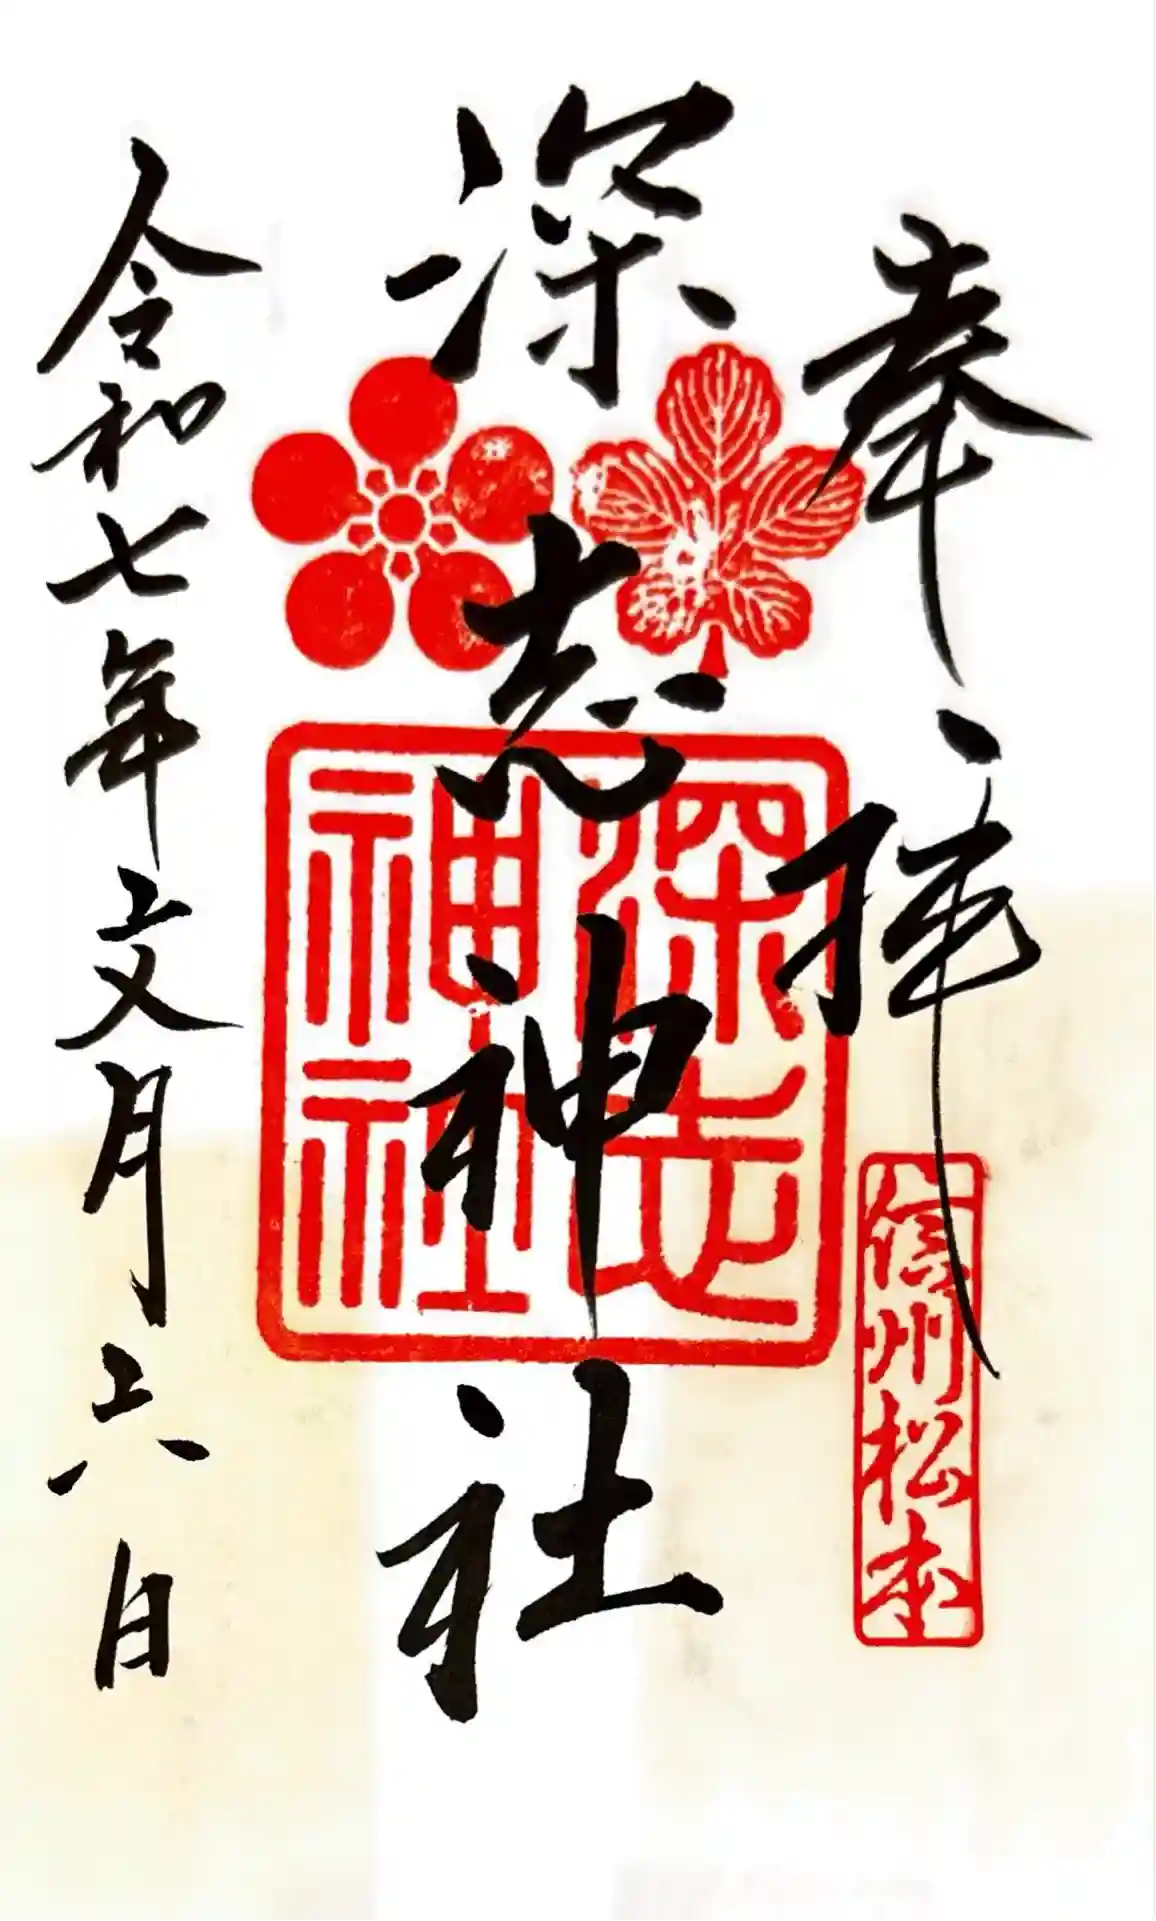 奉拝
信州松本
深志神社
深志
神社
令和七年文月六日